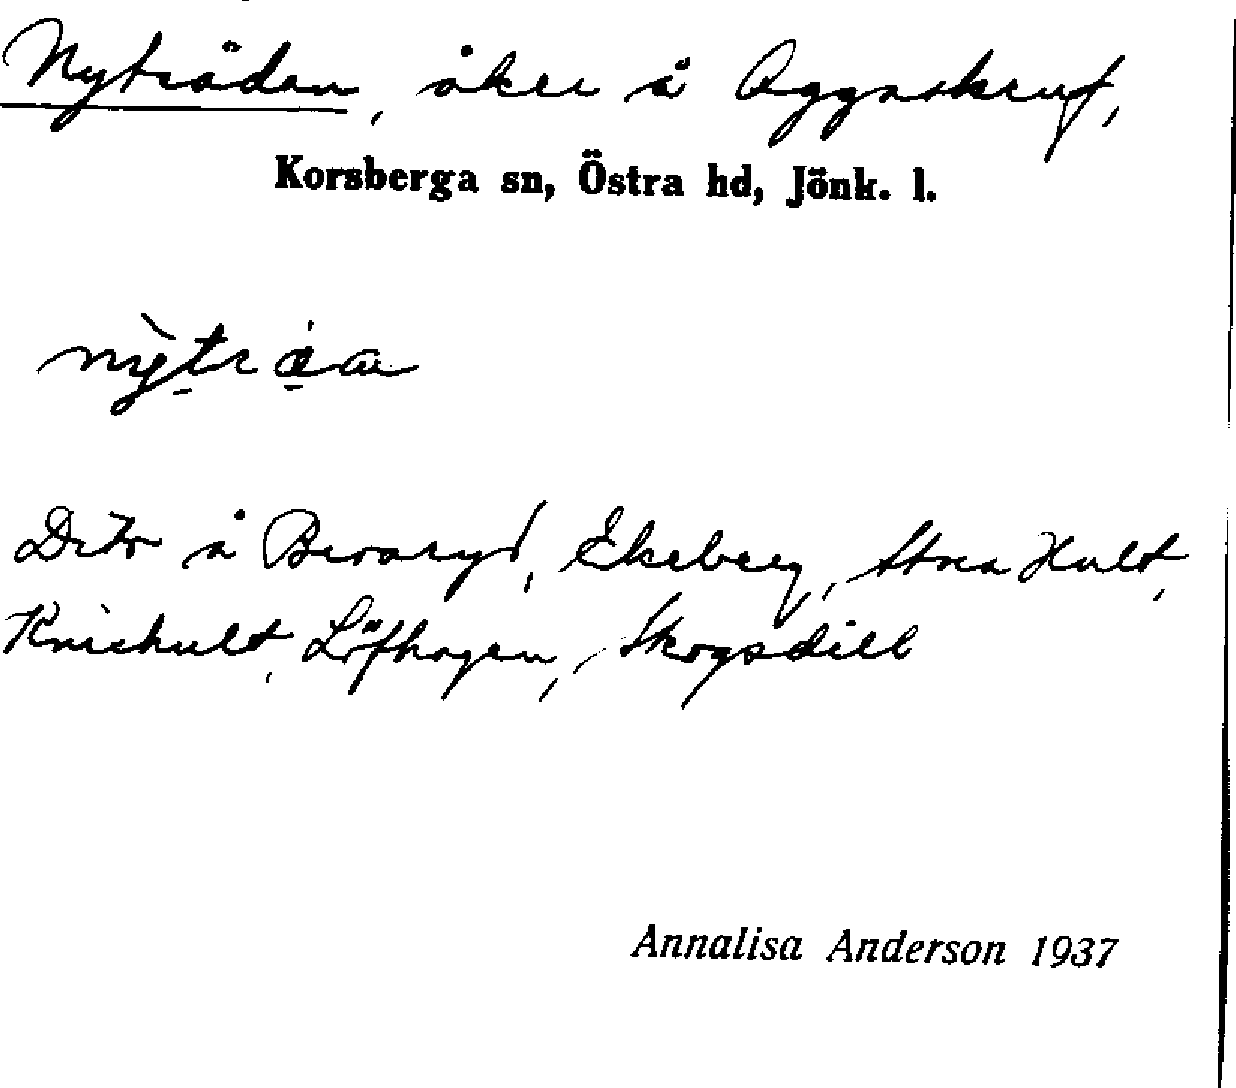 Nyträdan, åker å Aggaskruf,
Korsberga sn, Östra hd, Jönk. l.
Dito å Broaryd, Ekeberg, Stora Hult,
Knishult, Löfhagen, Skogsdill
Annalisa Anderson 1937